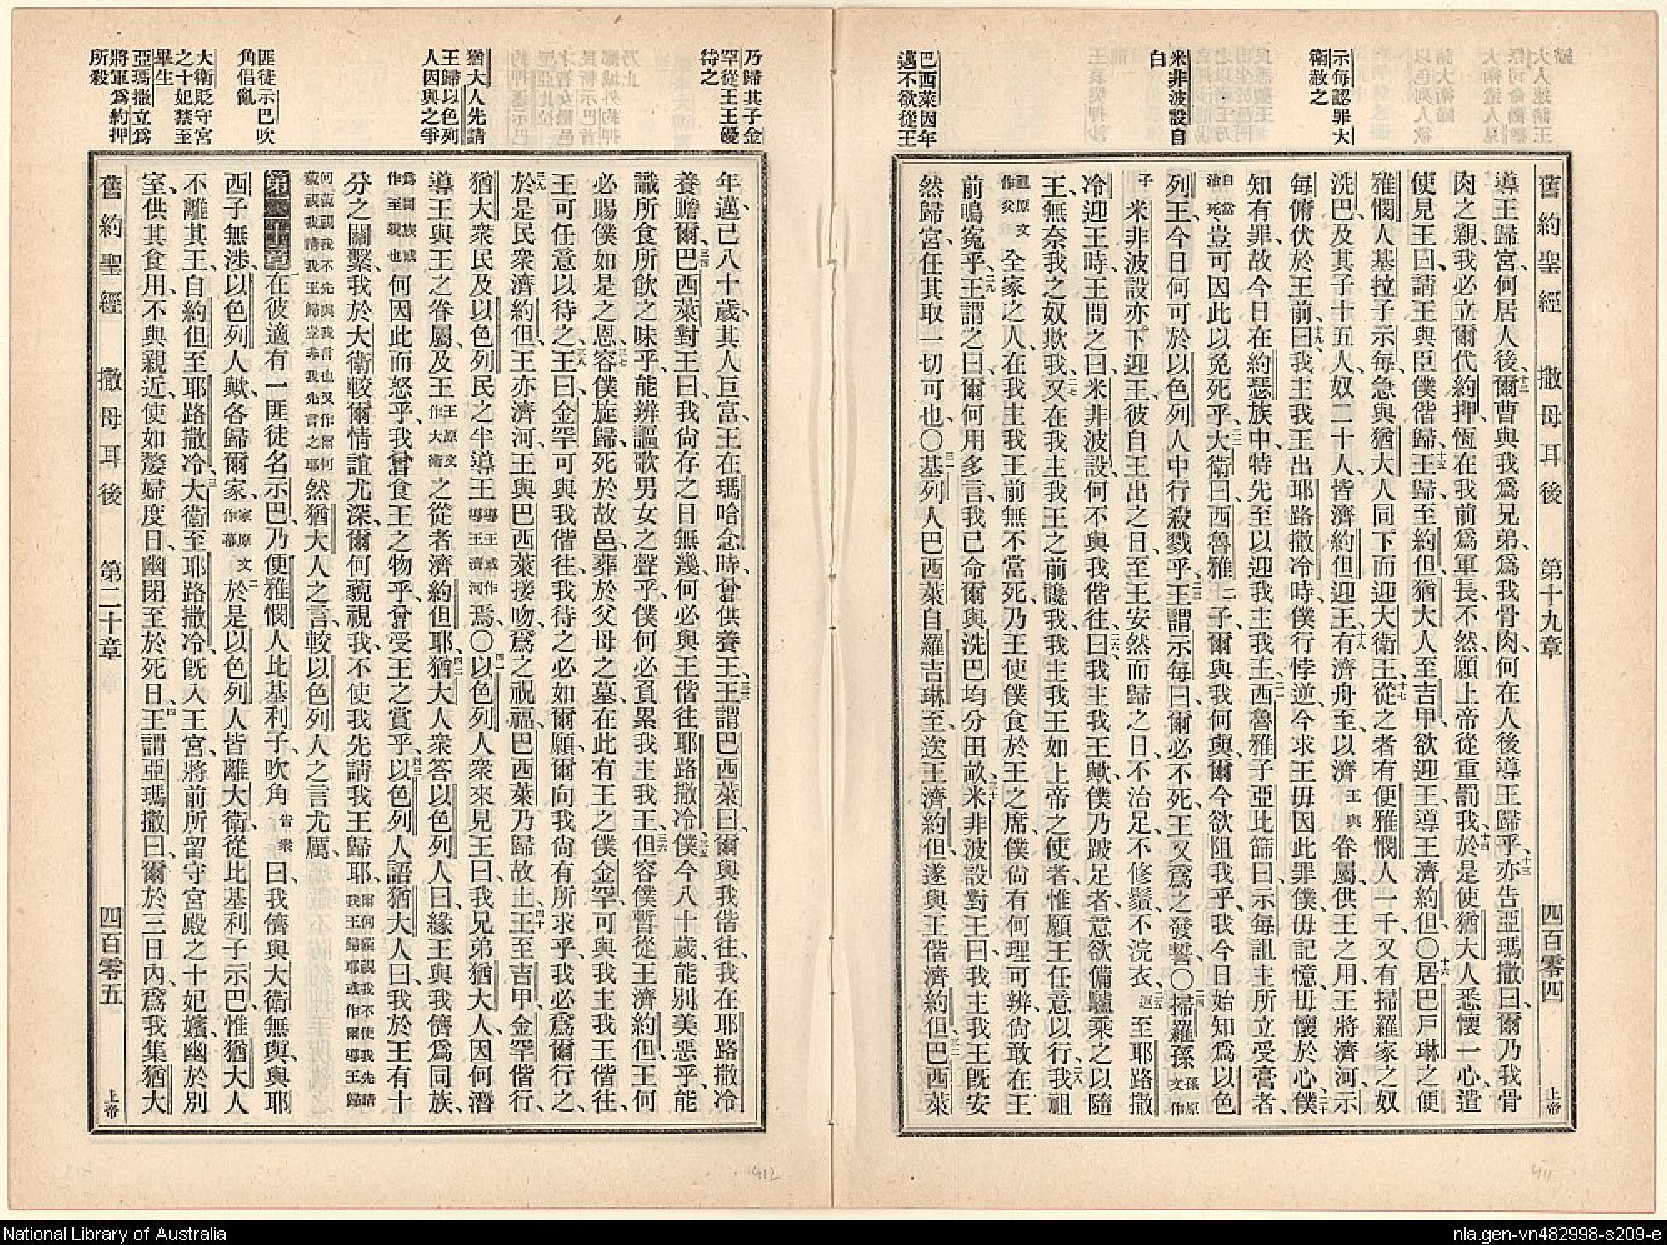 示每認罪大
衛赦之
米非波設自
白
巴西萊因年
邁不欲從王
舊約聖經 撒母耳後 第十九章 四百零四 上帝
導王歸宮何居人後爾曹與我爲兄弟爲我骨肉何在人後導王歸乎亦告亞瑪撒曰爾乃我骨
肉之親我必立爾代約押恆在我前爲軍長不然願上帝從重罰我於是使猶大人悉懷一心遣
使見王曰請王與臣僕偕歸王歸至約但猶大人至吉甲欲迎王導王濟約但○居巴戶琳之便
雅憫人基拉子示每急與猶大人同下而迎大衛王從之者有便雅憫人一千又有掃羅家之奴
洗巴及其子十五人奴二十人皆濟約但迎王有濟舟至以濟王與眷屬供王之用王將濟河示
每俯伏於王前曰我主我王出耶路撒冷時僕行悖逆今求王毋因此罪僕毋記憶毋懷於心僕
知有罪故今日在約瑟族中特先至以迎我主我王西魯雅子亞比篩曰示每詛主所立受膏者
自當治死豈可因此以免死乎大衛曰西魯雅二子爾與我何與爾今欲阻我乎我今日始知爲以色
列王今日何可於以色列人中行殺戮乎王謂示每曰爾必不死王又爲之發誓○掃羅孫孫原文作
子米非波設亦下迎王彼自王出之日至王安然而歸之日不治足不修鬚不浣衣迎至耶路撒
冷迎王時王問之曰米非波設何不與我偕往曰我主我王歟僕乃跛足者意欲備驢乘之以隨
王無奈我之奴欺我又在我主我王之前讒我我主我王如上帝之使者惟願王任意以行我祖
祖原文作父全家之人在我主我王前無不當死乃王使僕食於王之席僕尙有何理可辨尙敢在王
前鳴冤乎王謂之曰爾何用多言我已命爾與洗巴均分田畝米非波設對王曰我主我王旣安
然歸宮任其取一切可也○基列人巴西萊自羅吉琳至送王濟約但遂與王偕濟約但巴西萊
乃歸其子金
罕從王王優
待之
猶大人先請
王歸以色列
人因與之爭
匪徒示巴吹
角倡亂
大衛貶守宮
之十妃禁至
畢生
亞瑪撒立爲
將軍爲約押
所殺
年邁已八十歲其人巨富王在瑪哈念時曾供養王王謂巴西萊曰爾與我偕往我在耶路撒冷
養贍爾巴西萊對王曰我尙存之日無幾何必與王偕往耶路撒冷僕今八十歲能別美惡乎能
識所食所飮之味乎能辨謳歌男女之聲乎僕何必負累我主我王但容僕暫從王濟約但王何
必賜僕如是之恩容僕旋歸死於故邑葬於父母之墓在此有王之僕金罕可與我主我王偕往
王可任意以待之王曰金罕可與我偕往我待之必如爾願爾向我尙有所求乎我必爲爾行之
於是民衆濟約但王亦濟河王與巴西萊接吻爲之祝福巴西萊乃歸故土王至吉甲金罕偕行
猶大衆民及以色列民之半導王導王或作導王濟河焉○以色列人衆來見王曰我兄弟猶大人因何潛
導王與王之眷屬及王王原文作大衛之從者濟約但耶猶大人衆答以色列人曰緣王與我儕爲同族
爲同族或作至親也何因此而怒乎我曾食王之物乎曾受王之賞乎以色列人語猶大人曰我於王有十
分之關繫我於大衛較爾情誼尤深爾何藐視我不使我先請我王歸耶爾何藐視我不使我先請我王歸耶或作爾導王歸
何藐視我不先與我言也又作爾何藐視我請我王歸豈非我先言之耶然猶大人之言較以色列人之言尤厲
第二十章在彼適有一匪徒名示巴乃便雅憫人比基利子吹角告衆曰我儕與大衛無與與耶
西子無涉以色列人歟各歸爾家家原文作幕於是以色列人皆離大衛從比基利子示巴惟猶大人
不離其王自約但至耶路撒冷大衛至耶路撒冷旣入王宮將前所留守宮殿之十妃嬪幽於別
室供其食用不與親近使如嫠婦度日幽閉至於死日王謂亞瑪撒曰爾於三日內爲我集猶大
舊約聖經 撒母耳後 第二十章 四百零五 上帝
412
411
National Library of Australia
nla.gen-vn482998-s209-e